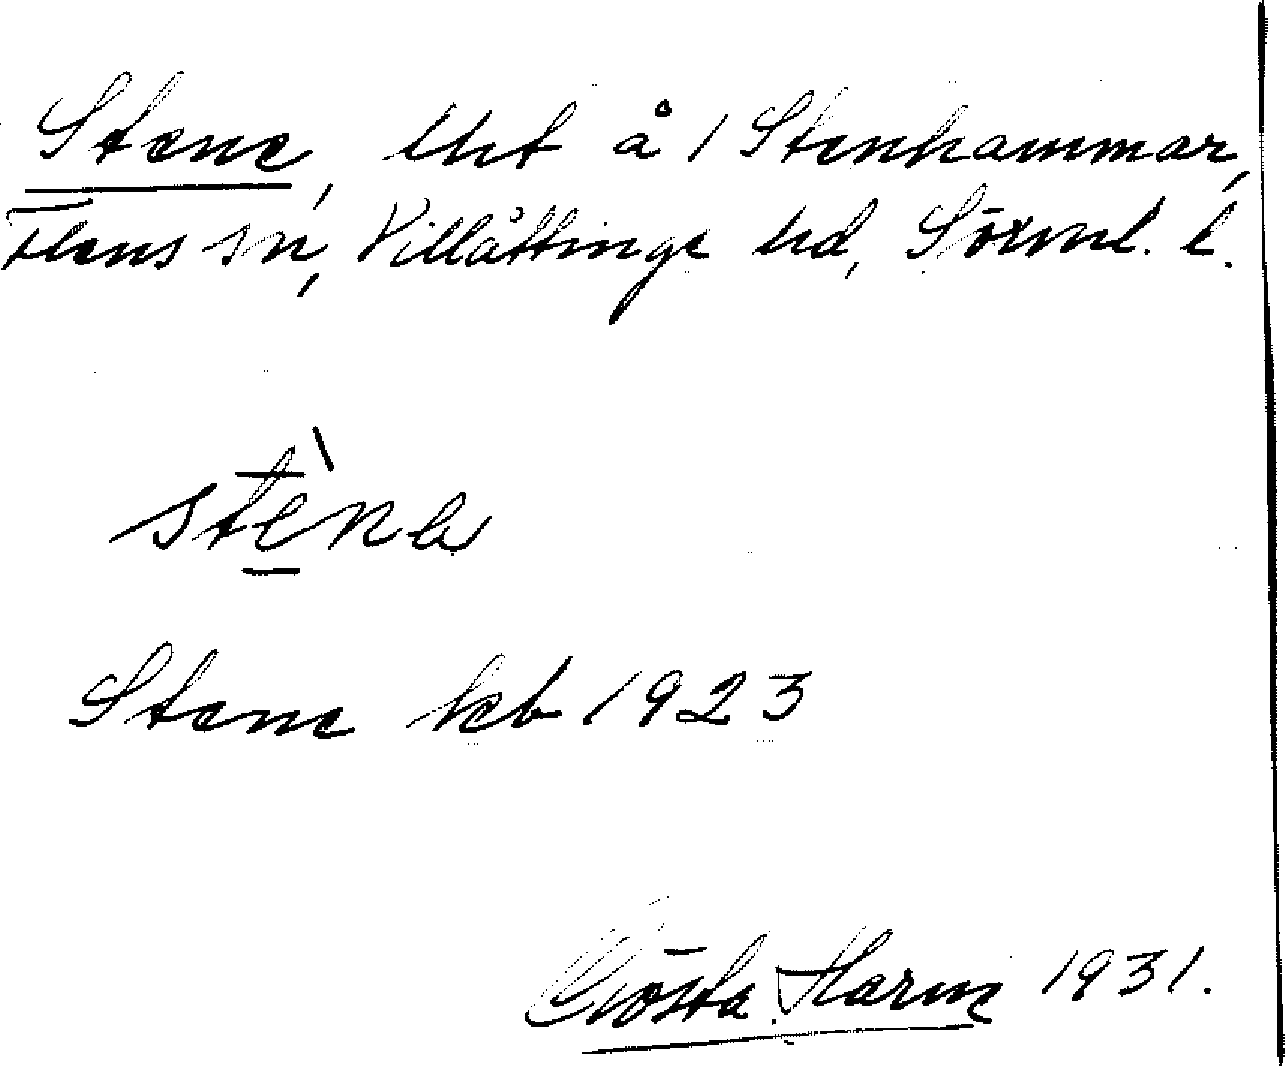 Stene, lht å 1 Stenhammar,
Flens sn, Villåttinge hd, Sörml. l.
stèna
Stene kb 1923
Gösta Harm 1931.